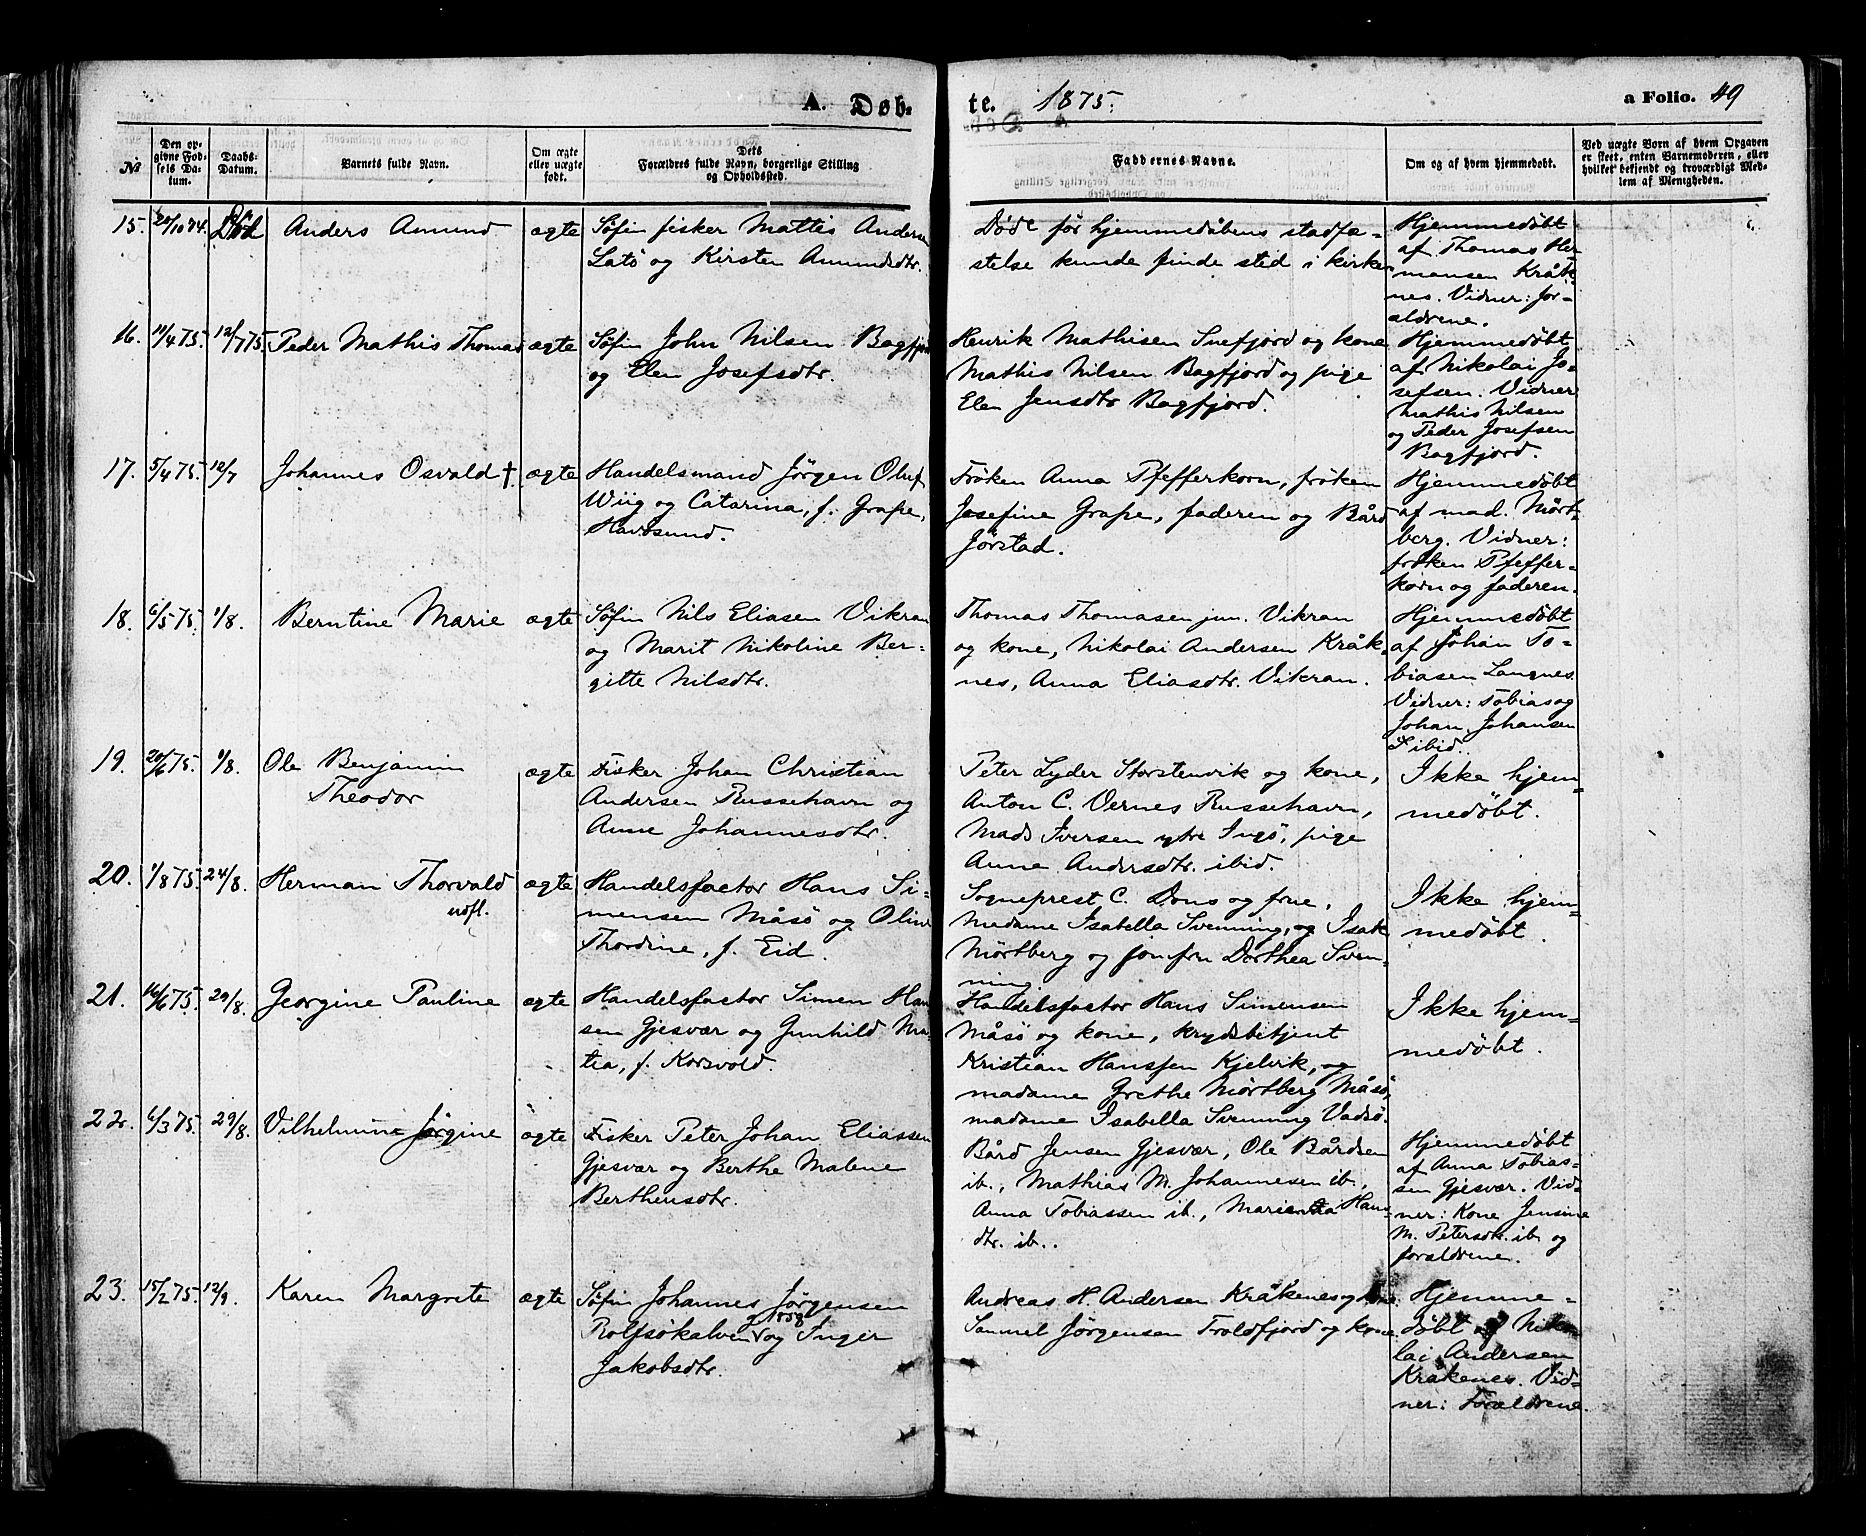 A. Døb=
te. 1875. a Folio. 49
№
Den op-
givne Fød-
sels Da-
tum.
Daabs-
Datum.
Barnets fulde Navn.
Om ægte
eller uægte
født.
Dets
Forældres fulde Navn, borgerlige Stilling
og Opholdssted.
Faddernes Navne.
Om og af hvem hjemmedøbt.
Ved uægte Børn af hvem Opgaven
er skeet, enten Barnemoderen, eller
hvilket bekjendt og troværdigt Med-
lem af Menigheden.
15. 20/10 74. Død Anders Amund ægte
Søfin fisker Mattis Andersen
Latö og Kirsten Amundsdtr.
Døde før hjemmedøbens stadfæ-
stelse kunde finde sted i kirke
Hjemmedøbt
af Thomas Her-
mansen Kråk-
nes. Vidner: for-
ældrene.
16. 11/4 75. 12/7 75. Peder Mathis Thomas ægte
Søfin John Nilsen Bagfjord
og Elen Josefsdtr.
Henrik Mathisen Snefjord og kone
Mathis Nilsen Bagfjord og pige
Elen Jensdtr Bagfjord.
Hjemmedøbt
af Nikolai Jo-
sefsen. Vidner
Mathis Nilsen
og Peder Josefsen
Bagfjord.
17. 5/4 75. 12/7 Johannes Osvald †. ægte
Handelsmand Jørgen Oluf
Wiig og Catarina, f. Grape,
Havøsund.
Frøken Anna Pfefferkorn, frøken
Josefine Grape, faderen og Bård
Jørstad.
Hjemmedøbt
af mad. Mört-
berg. Vidner:
frøken Pfeffer-
korn og faderen.
18. 6/5 75. 1/8. Berntine Marie ægte
Søfin Nils Eliasen Vikran
og Marit Nikoline Ber-
gitte Nilsdtr.
Thomas Thomasen jun. Vikran
og kone, Nikolai Andersen Kråk-
nes, Anna Eliasdtr. Vikran.
Hjemmedøbt
af Johan To-
biasen Langnes.
Vidner: Tobias og
Johan Johansen
ibid.
19. 20/6 75. 1/8. Ole Benjamin
Theodor
ægte
Fisker Johan Christian
Andersen Russehavn og
Anne Johannesdtr.
Peter Lyder Storstenvik og kone,
Anton C. Vernes Russehavn,
Mads Iversen ytre Ingö, pige
Anne Andersdtr. ibid.
Ikke hjem-
medøbt.
20. 1/8 75. 24/8. Herman Thorvald
udfl.
ægte
Handelsfactor Hans Si-
mensen Måsö og Oline
Thordine, f. Eid.
Sogneprest C. Dons og frue,
Madame Isabella Svenning, og Isak
Mörtberg og jomfru Dorthea Sven-
ning.
Ikke hjem-
medøbt.
21. 16/6 75. 29/8. Georgine Pauline ægte
Handelsfactor Simen Han-
sen Gjesvær og Gunhild Ma-
tia, f. Korsvold.
Handelsfactor Hans Simensen
Måsö og kone, krydsbetjent
Kristian Hanssen Kjelvik, og
madame Grethe Mörtberg Måsö,
madame Isabella Svenning Vadsö.
Ikke hjem-
medøbt.
22. 6/3 75. 29/8. Vilhelmine Jørgine ægte
Fisker Peter Johan Eliassen
Gjesvær og Berthe Malene
Berthensdtr.
Bård Jensen Gjesvær, Ole Bårdsen
ib., Mathias M. Johannesen ib.,
Anna Tobiassen ib., Marientha Hans-
dtr. ib..
Hjemmedøbt
af Anna Tobias-
sen Gjesvær. Vid-
ner: Kone Jensine
M. Petersdk. ib. og
forældrene.
23. 15/2 75. 12/9. Karen Margrete ægte
Søfin Johannes Jørgensen
Rolfsökalven og Inger
Jakobsdtr.
Andreas H. Andersen Kråkenes og kone
Samuel Jørgensen Troldfjord og kone
Hjemme-
døbt af Niko-
lai Andersen
Kråkenes. Vid-
ner: Forældrene.